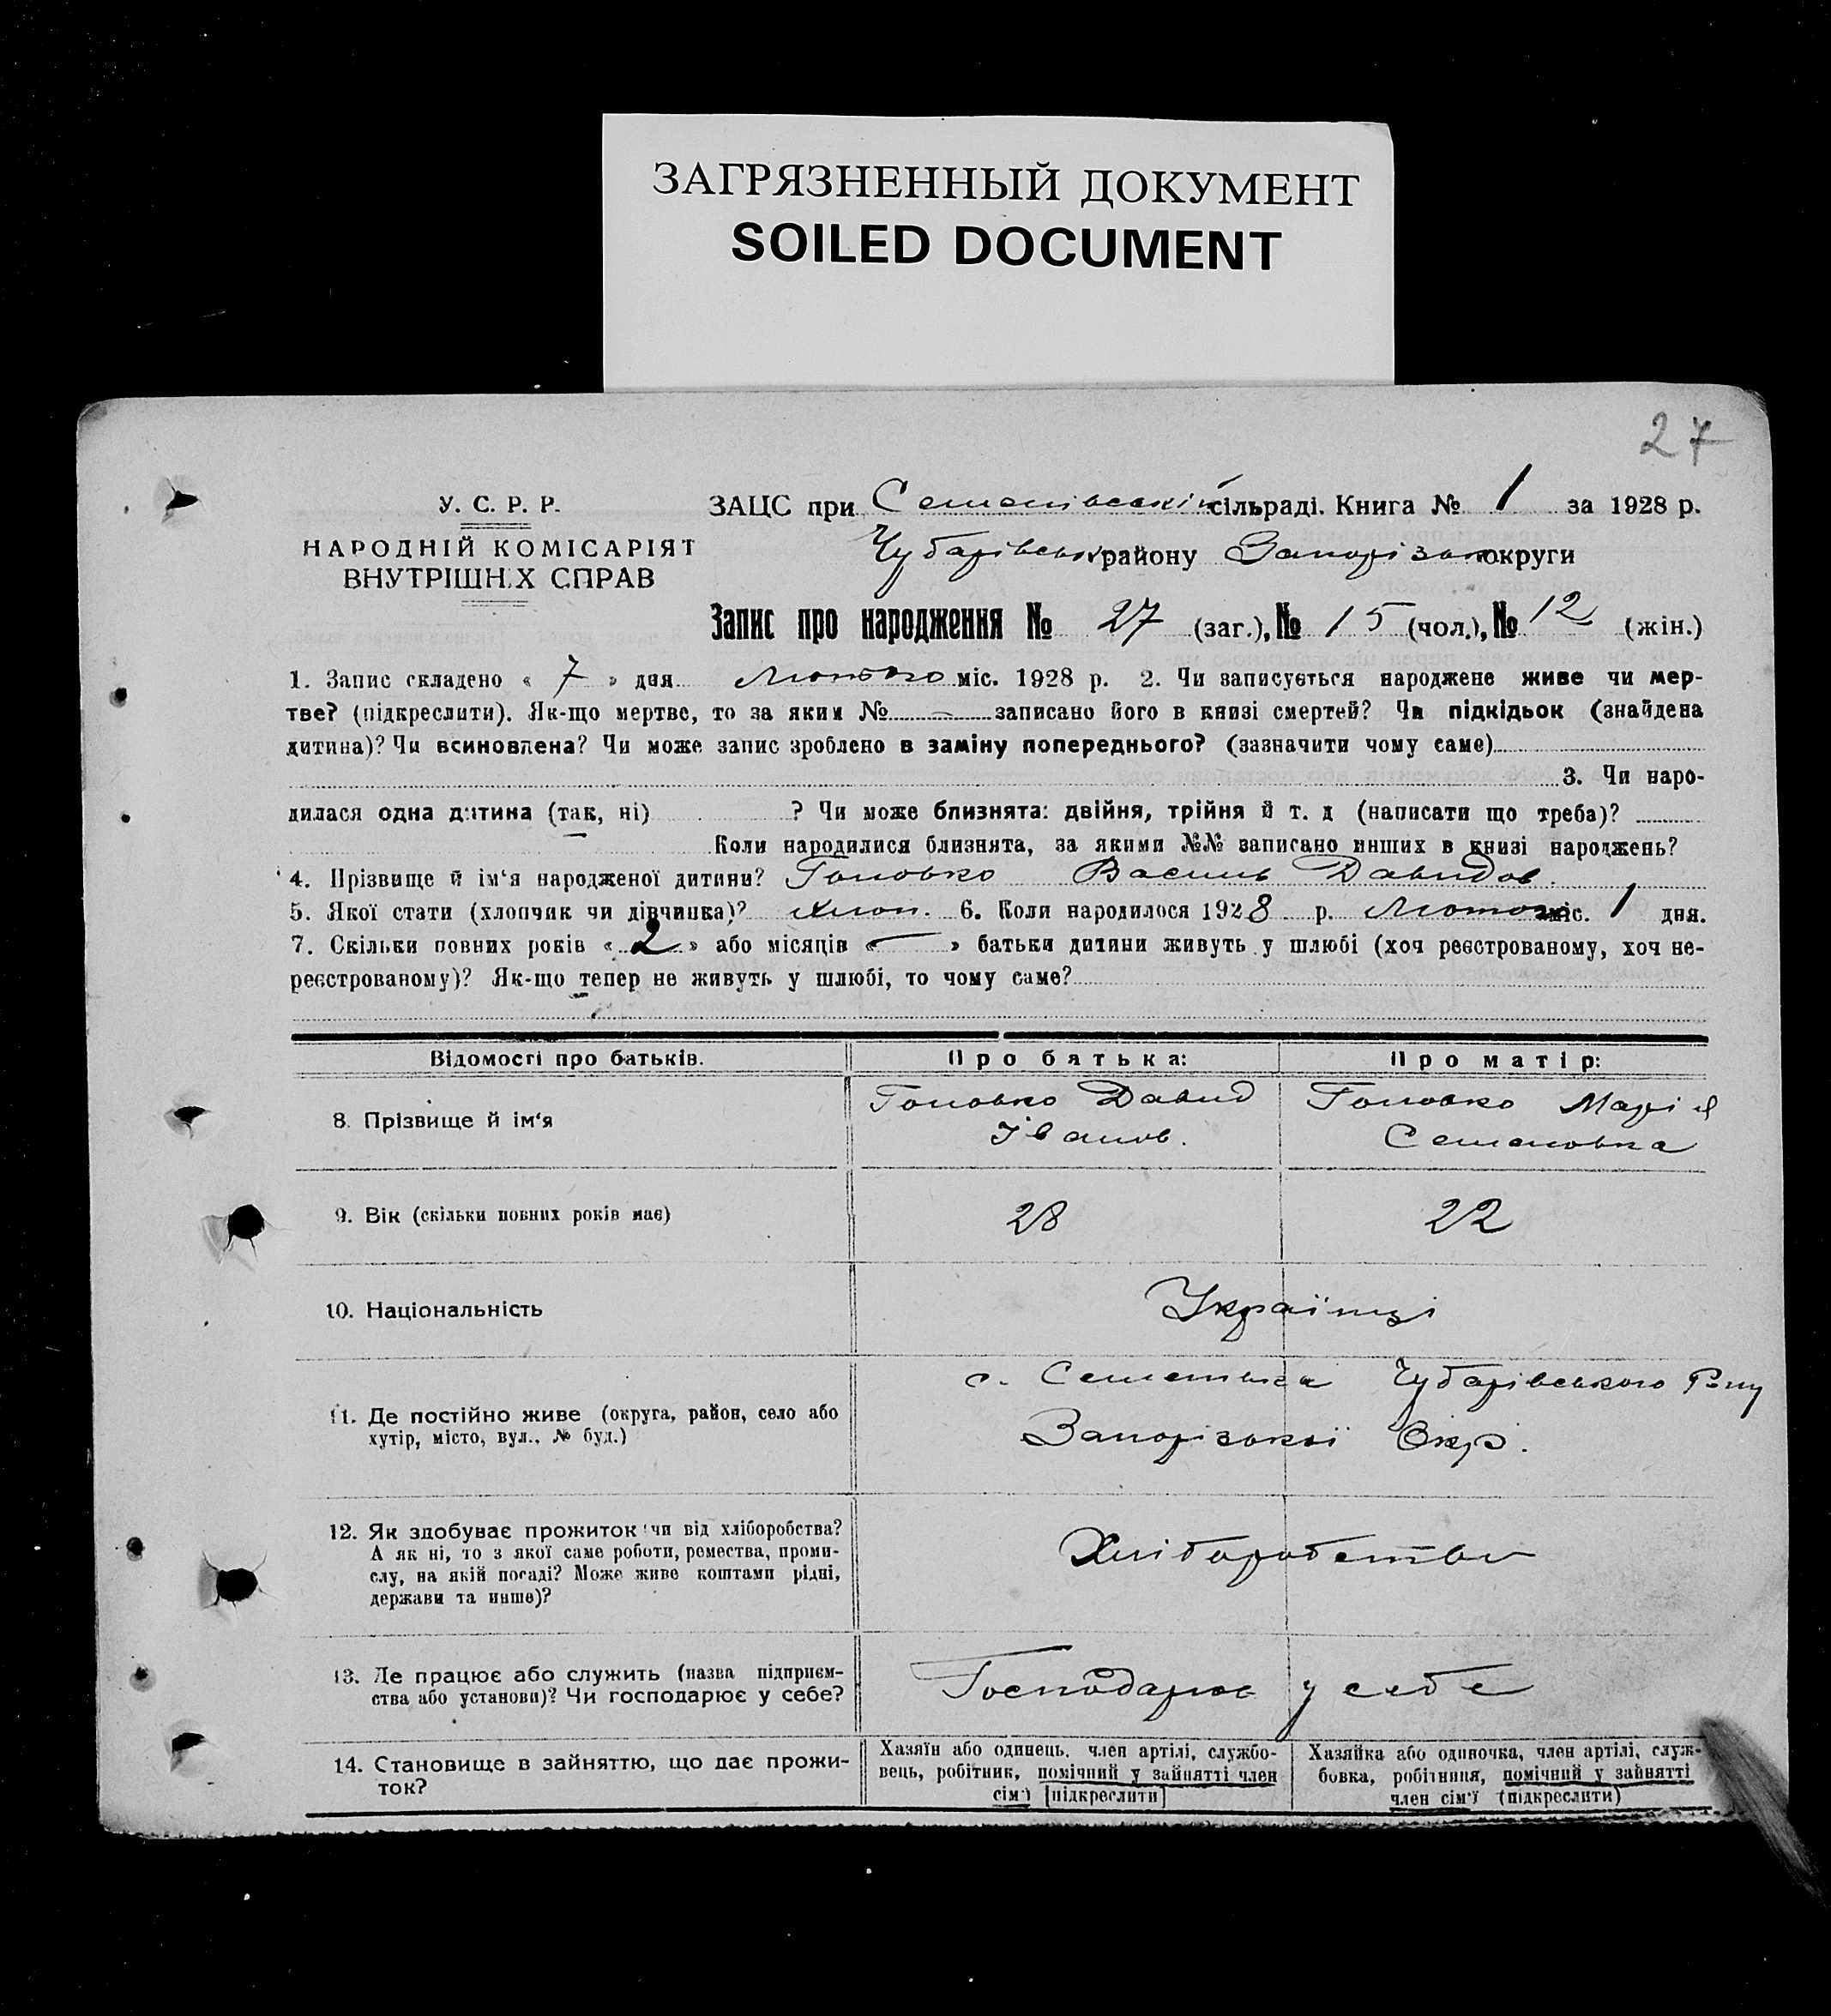 ЗАГРЯЗНЕННЫЙ ДОКУМЕНТ
SOILED DOCUMENT
27
У. С. Р. Р.
НАРОДНІЙ КОМІСАРІЯТ
ВНУТРІШНІХ СПРАВ
ЗАЦС при Семенівській сільраді. Книга № 1 за 1928 р.
Чубарівськ району Запорізьк округи
Запис про народження № 27 (заг.), № 15 (чол.), № 12 (жін.)
1. Запис складено « 7 » дня Лютого міс. 1928 р. 2. Чи записується народжене живе чи мер-
тве? (підкреслити). Як-що мертве, то за яким № — записано його в книзі смертей? Чи підкідьок (знайдена
дитина)? Чи всиновлена? Чи може запис зроблено в заміну попереднього? (зазначити чому саме)
3. Чи наро-
дилася одна дитина (так, ні) ? Чи може близнята: двійня, трійня й т. д (написати що треба)?
Коли народилися близнята, за якими №№ записано инших в книзі народжень?
4. Прізвище й ім‘я народженої дитини? Головко Василь Давидов.
5. Якої стати (хлопчик чи дівчинка)? хлоп. 6. Коли народилося 1928 р. Лютого міс. 1 дня.
7. Скільки повних років « 2 » або місяців « — » батьки дитини живуть у шлюбі (хоч реєстрованому, хоч не-
реєстрованому)? Як-що тепер не живуть у шлюбі, то чому саме?
Відомості про батьків.
Про батька:
Про матір:
8. Прізвище й ім‘я
Головко Давид
Іванов.
Головко Марія
Семеновна
9. Вік (скільки повних років має)
28
22
10. Національність
Українці
11. Де постійно живе (округа, район, село або
хутір, місто, вул., № буд.)
с. Семенівка Чубарівського Р-ну
Запорізької Окр.
12. Як здобуває прожиток: чи від хліборобства?
А як ні, то з якої саме роботи, ремества, проми-
слу, на якій посаді? Може живе коштами рідні,
держави та инше)?
Хліборобством
13. Де працює або служить (назва підприєм-
ства або установи)? Чи господарює у себе?
Господарює у себе
14. Становище в зайняттю, що дає прожи-
ток?
Хазяїн або одинець, член артілі, службо-
вець, робітник, помічний у зайнятті член
сім‘ї [підкреслити]
Хазяйка або одиночка, член артілі, служ-
бовка, робітниця, помічний у зайнятті
член сім‘ї (підкреслити)